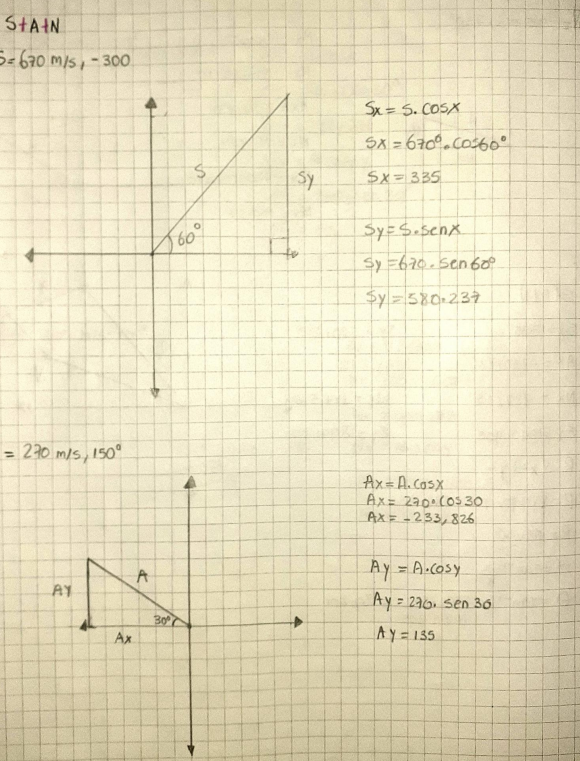 S+A+N
S=670 m/s, -300
Sx = S.cosx
Sx = 670°.cos60°
Sx = 335
S
Sy
60°
Sy=S.senx
Sy=670.sen60°
Sy=580.237
= 270 m/s, 150°
Ax=A.cosx
Ax= 270.cos30
Ax= -233,826
A
Ay
30°
Ax
Ay = A.cosy
Ay=270. sen 30
Ay=135